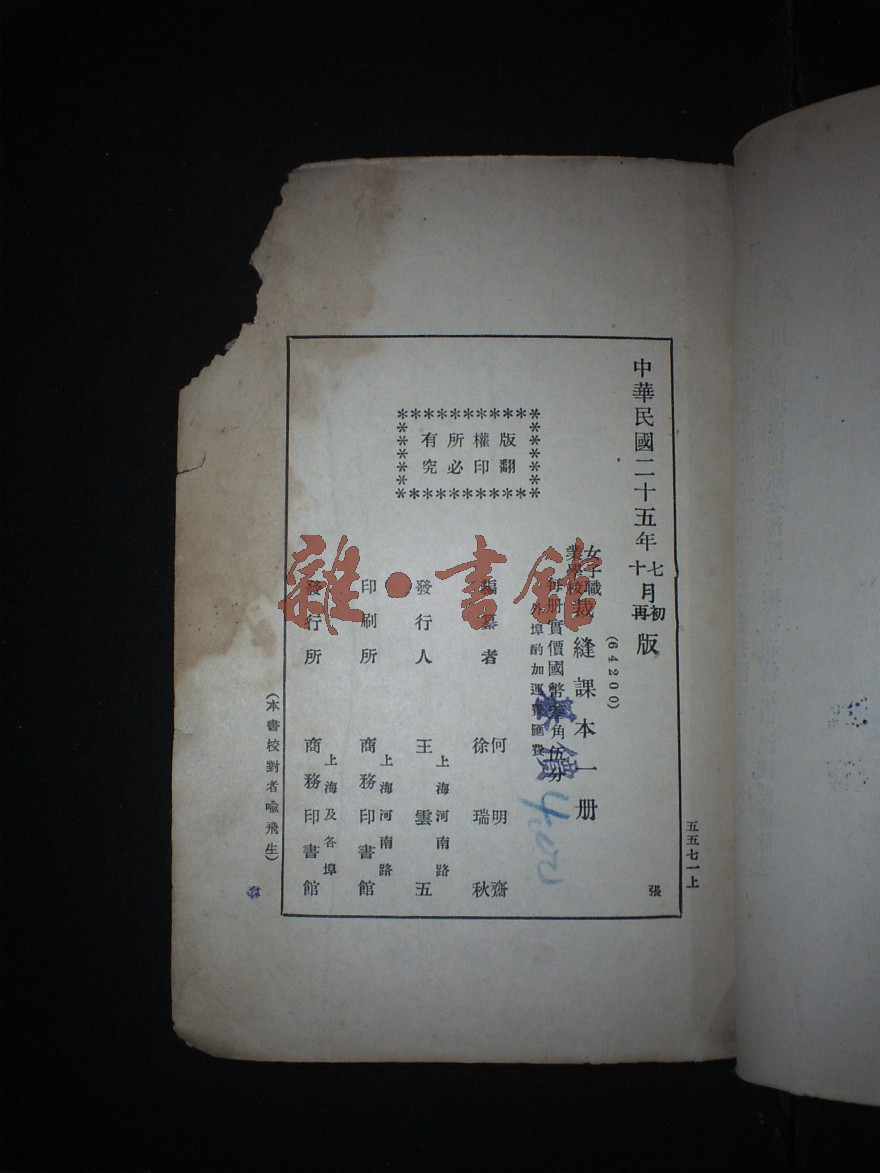 五五七一上
中華民國二十五年七月初版
十月再版
(64200)
女子職業學校裁縫課本一册
每册實價國幣角伍分
外埠酌加運費匯費
編纂者 何明齋
徐瑞秋
發行人 王雲五
上海河南路
印刷所 商務印書館
上海河南路
發行所 商務印書館
上海及各埠
版權所有
翻印必究
(本書校對者喩飛生)
張
雜·書館